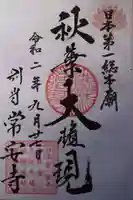 日本第一総本廟
秋葉大権現
令和二年九月廿七日
別当常安寺